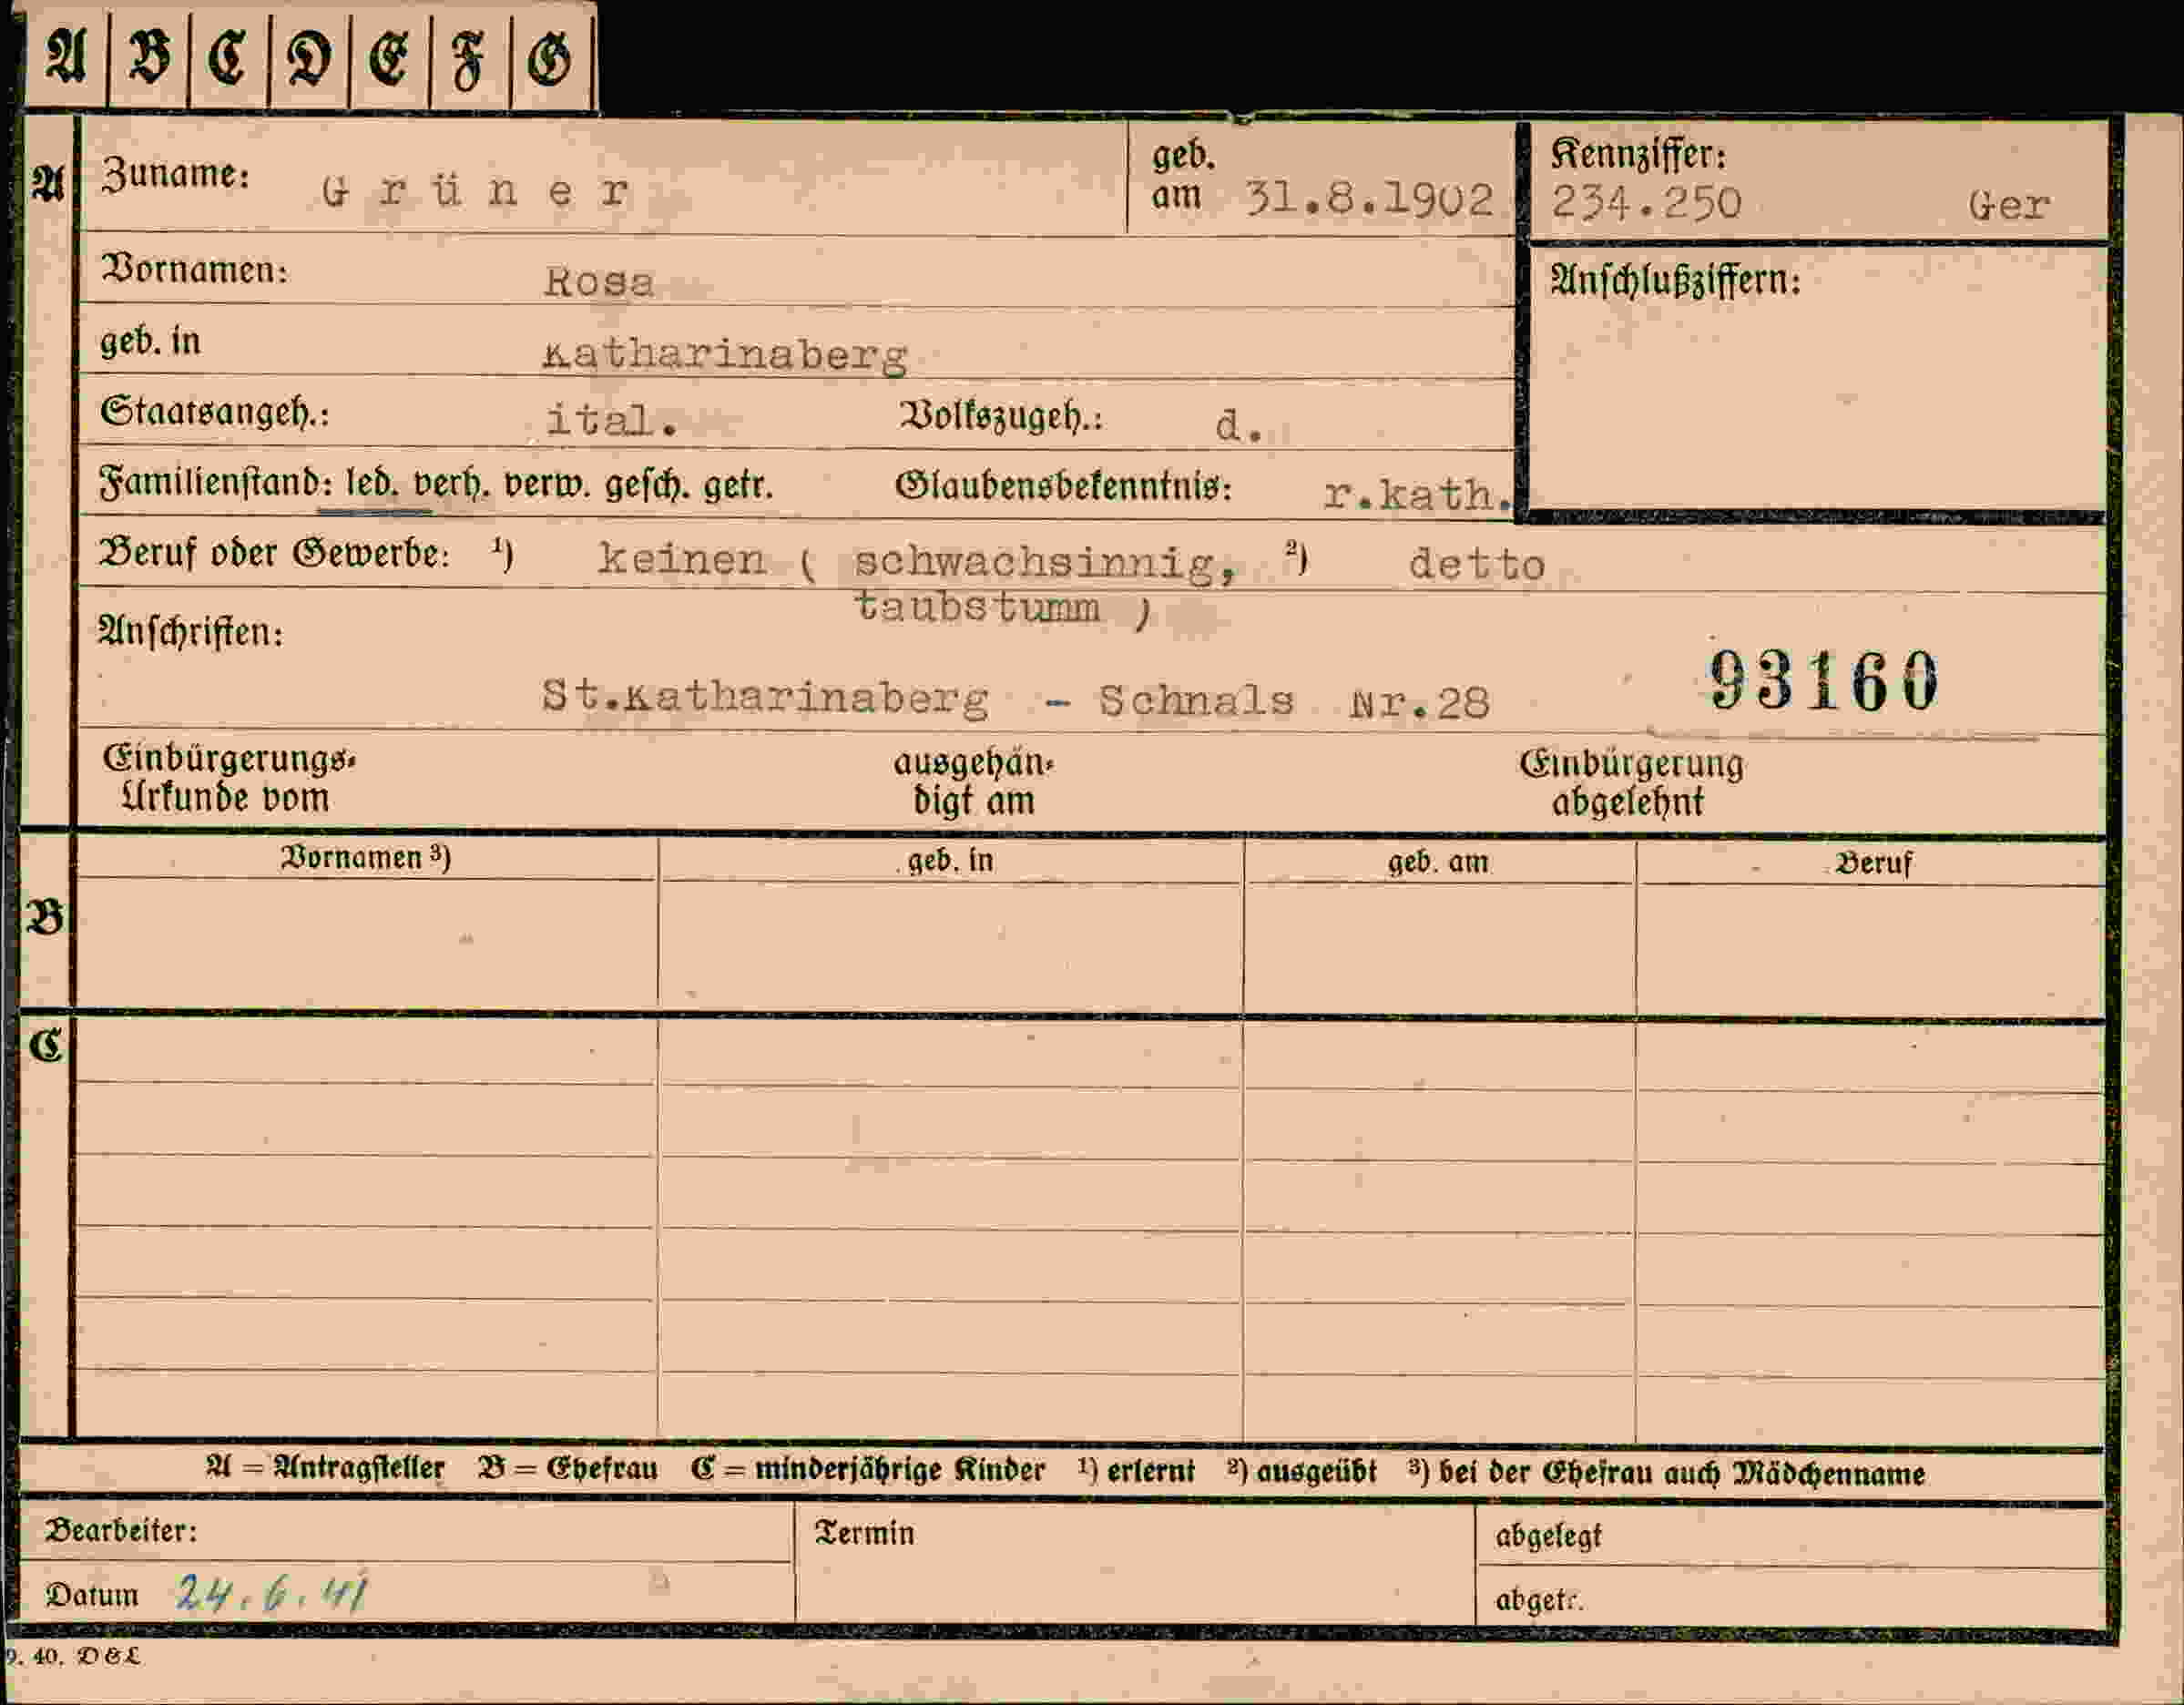 A B C D E F G
A Zuname: Grüner geb. am 31.8.1902 Kennziffer: 234.250 Ger
Vornamen: Rosa Anschlußziffern:
geb. in Katharinaberg
Staatsangeh.: ital. Volkszugeh.: d.
Familienstand: led. verh. verw. gesch. getr. Glaubensbekenntnis: r.kath.
Beruf oder Gewerbe: ¹) keinen ( schwachsinnig, ²) detto
taubstumm )
Anschriften:
St.Katharinaberg - Schnals Nr.28 93160
Einbürgerungs- ausgehän- Einbürgerung
Urkunde vom digt am abgelehnt
Vornamen ³) geb. in geb. am Beruf
B
C
A = Antragsteller B = Ehefrau C = minderjährige Kinder ¹) erlernt ²) ausgeübt ³) bei der Ehefrau auch Mädchenname
Bearbeiter: Termin abgelegt
Datum 24.6.41 abgetr.
9. 40. D & L